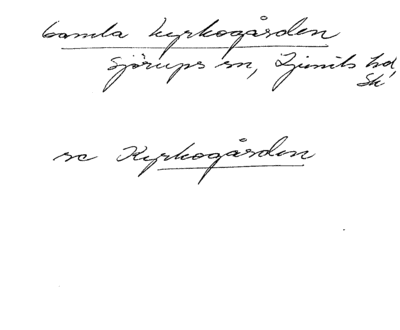 Gamla kyrkogården
Sjörups sn, Ljunits hd,
Sk
se Kyrkogården